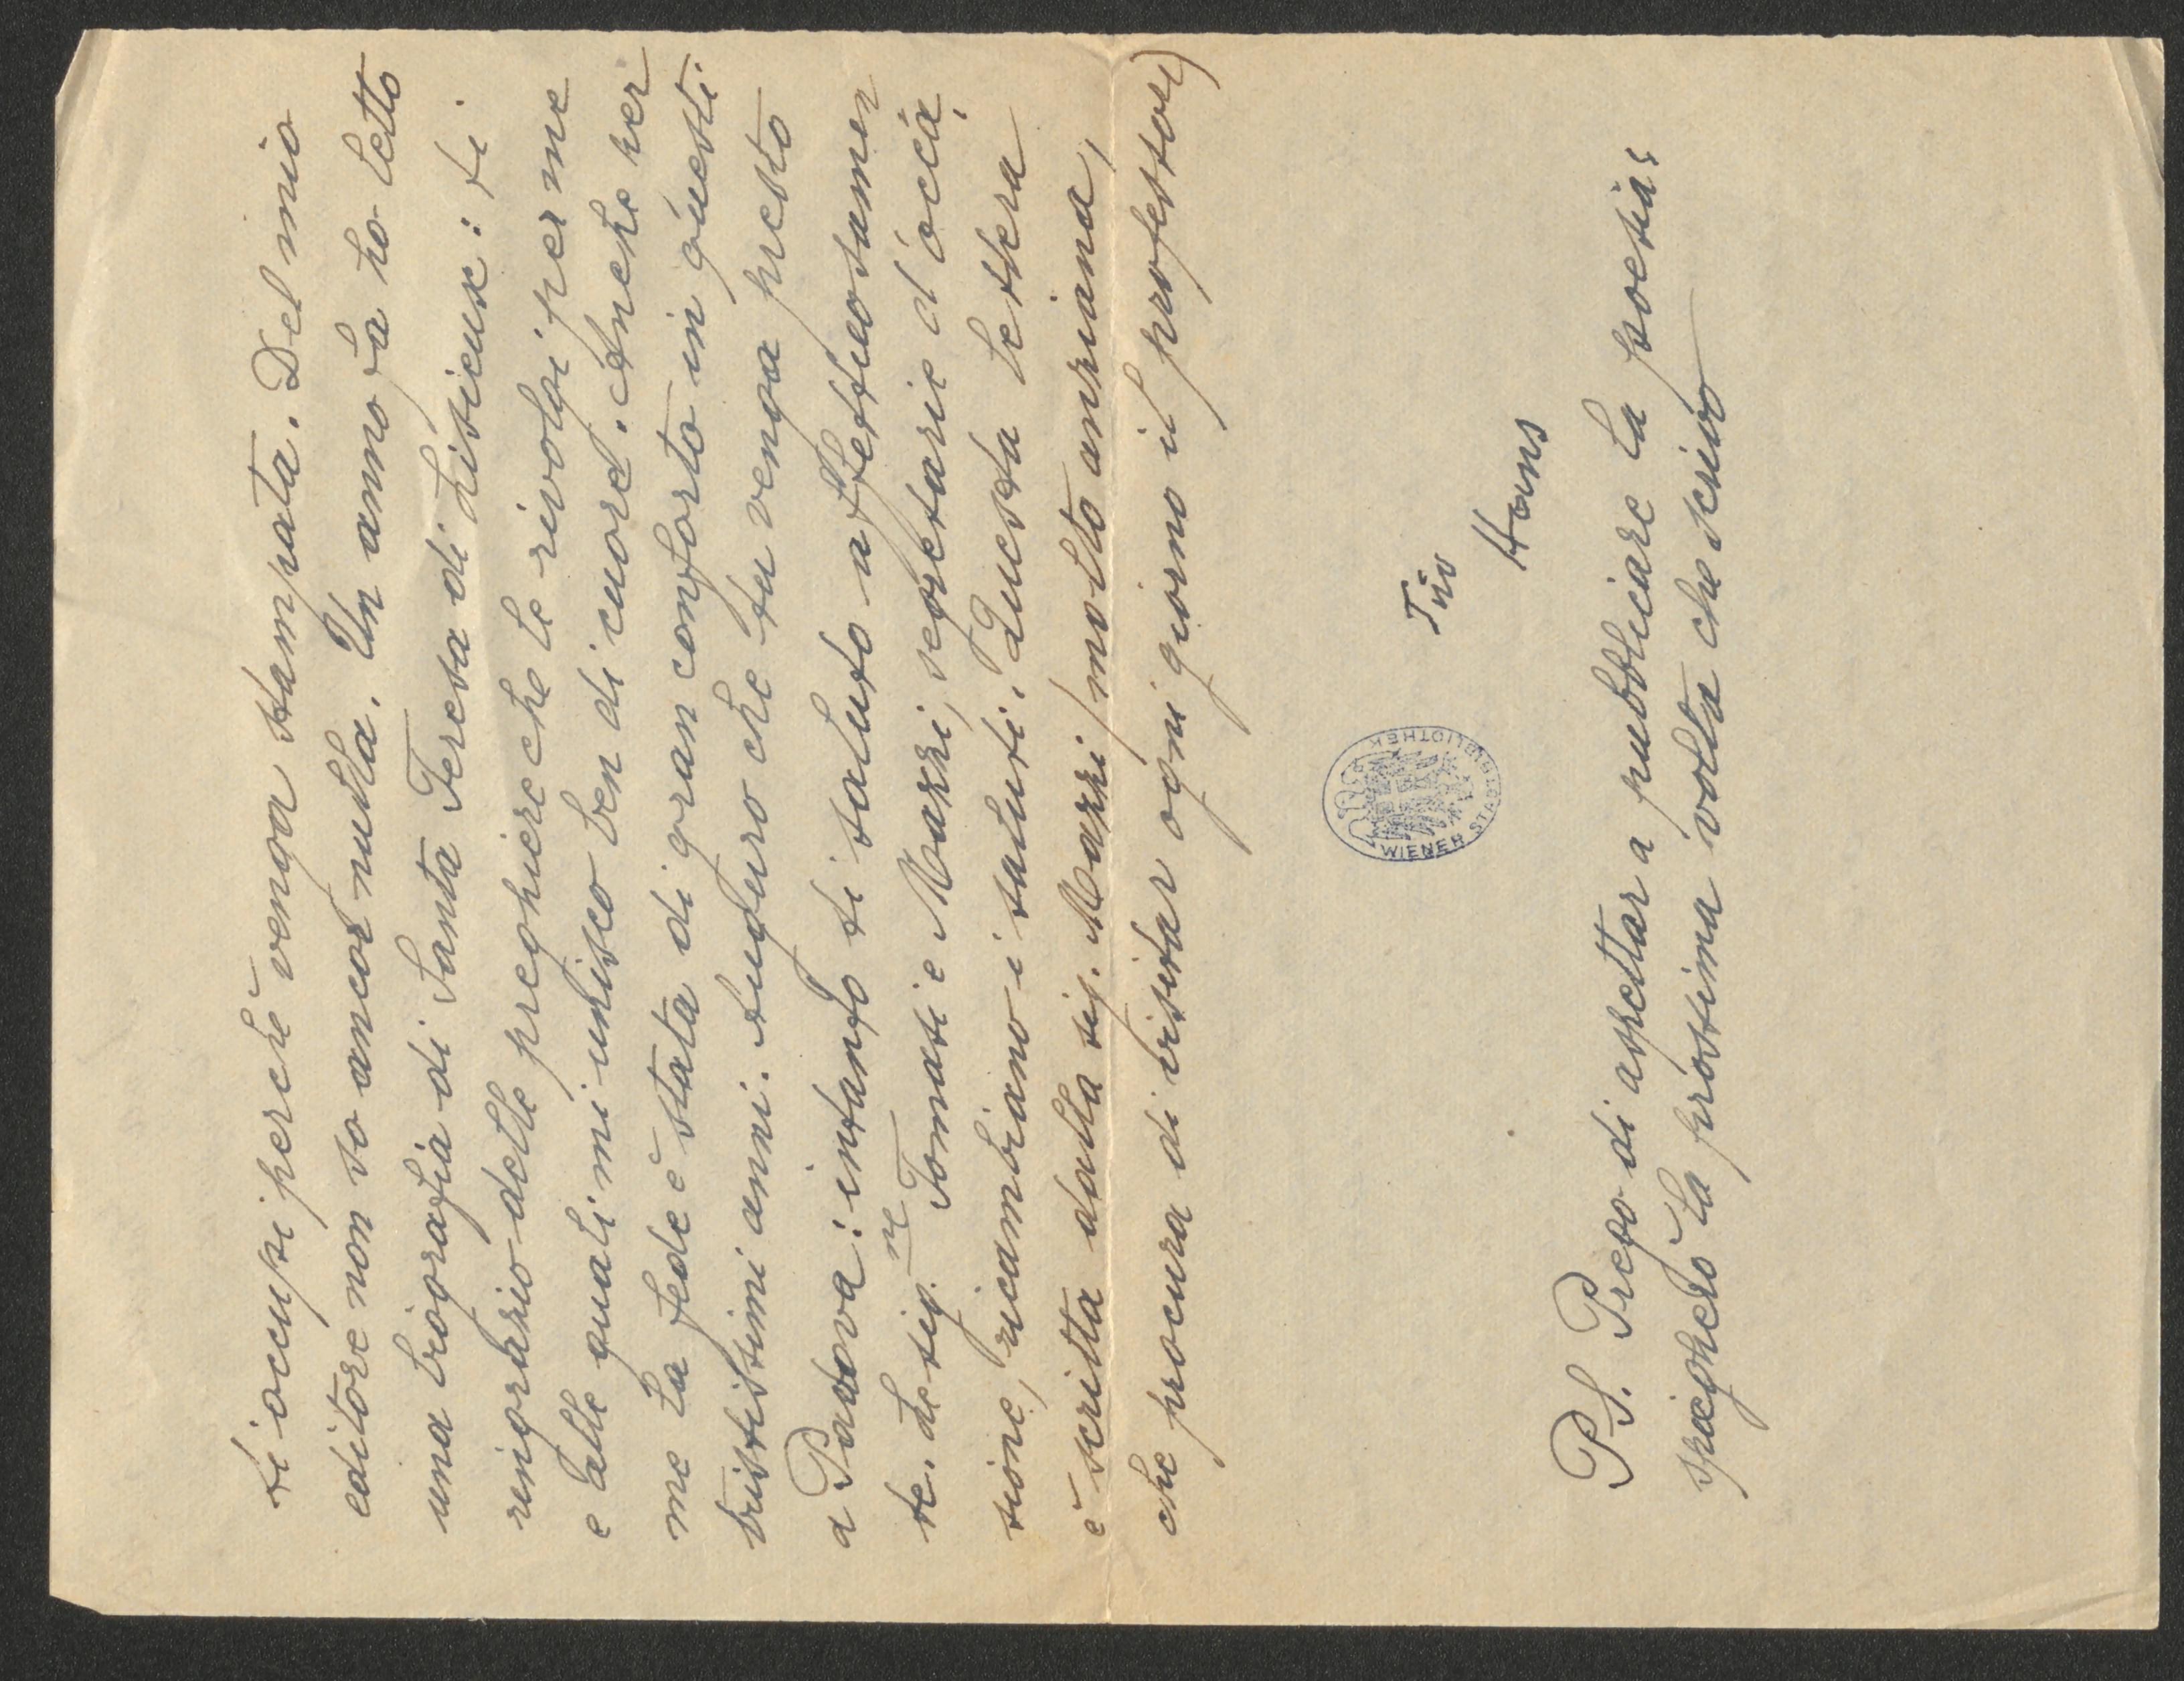 ti occupi perchè venga stampata. Del mio
editore non so ancor nulla. Un anno fa ho letto
una biografia di Santa Teresa di Lisieux: ti
ringrazio delle preghiere che le rivolgi per me
e alle quali mi unisco ben di cuore. Anche per
me la fede è stata di gran conforto in questi
tristissimi anni. Auguro che tu venga presto
a Padova: intanto ti saluto affettuosamen
te. Le sig.ne Tomasi e Marzi, segretarie d'occa,
sione, ricambiano i saluti. Questa lettera
è scritta dalla sig. Marzi (molto anziana,
che procura di visitar ogni giorno il professore)
Tuo
Hans
WIENER STADTBIBLIOTHEK
P.S. Prego di aspettar a pubblicare la poesia:
spiegherò la prossima volta che scrivo